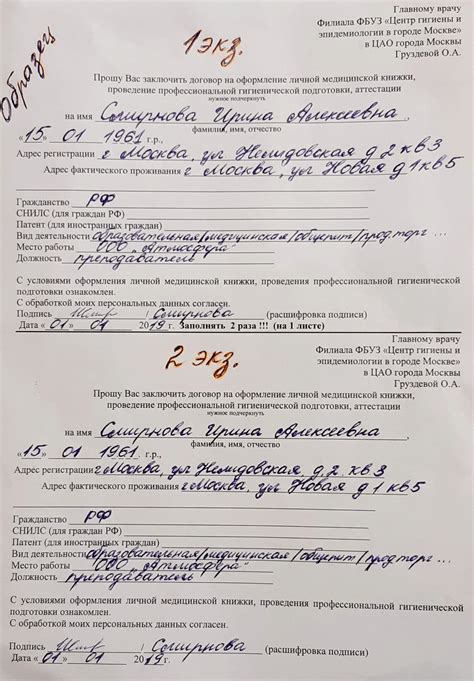 Образец
1 экз.
Главному врачу
Филиала ФБУЗ «Центр гигиены и
эпидемиологии в городе Москве»
в ЦАО города Москвы
Груздевой О.А.
Прошу Вас заключить договор на оформление личной медицинской книжки,
проведение профессиональной гигиенической подготовки, аттестации
нужное подчеркнуть
на имя Смирнова Ирина Алексеевна,
фамилия, имя, отчество
«15» 01 1961 г.р.,
Адрес регистрации г Москва, ул Нелидовская д 2 кв 3
Адрес фактического проживания г Москва, ул Новая д 1 кв 5
Гражданство РФ
СНИЛС (для граждан РФ)
Патент (для иностранных граждан)
Вид деятельности образовательная/медицинская/общепит/прод торг ...
Место работы ООО „Атмосфера"
Должность преподаватель
С условиями оформления личной медицинской книжки, проведения профессиональной гигиенической
подготовки ознакомлен.
С обработкой моих персональных данных согласен.
Подпись / Смирнова (расшифровка подписи)
Дата «01» 01 2019 г. Заполнять 2 раза !!! (на 1 листе)
Главному врачу
Филиала ФБУЗ «Центр гигиены и
эпидемиологии в городе Москве»
в ЦАО города Москвы
Груздевой О.А.
2 экз.
Прошу Вас заключить договор на оформление личной медицинской книжки,
проведение профессиональной гигиенической подготовки, аттестации
нужное подчеркнуть
на имя Смирнова Ирина Алексеевна,
фамилия, имя, отчество
«15» 01 1961 г.р.,
Адрес регистрации г Москва, ул Нелидовская, д, 2 кв 3
Адрес фактического проживания г Москва, ул Новая д 1 кв 5
Гражданство РФ
СНИЛС (для граждан РФ)
Патент (для иностранных граждан)
Вид деятельности образовательная/медицинская/общепит/прод торг ...
Место работы ООО „Атмосфера"
Должность преподаватель
С условиями оформления личной медицинской книжки, проведения профессиональной гигиенической
подготовки ознакомлен.
С обработкой моих персональных данных согласен.
Подпись / Смирнова (расшифровка подписи)
Дата «01» 01 2019 г.